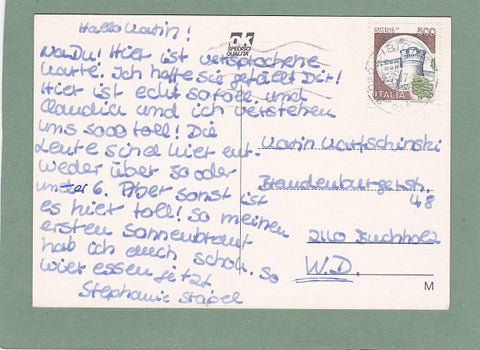 Hallo Katin!
Na Du! Hier ist versprochene
Karte. Ich hoffe sie gefällt Dir!
Hier ist echt so toll. und
Claudia und ich verstehen
uns sooo toll! Die
Leute sind hier ent-
weder über 50 oder
unter 6. Aber sonst ist
es hier toll! So meinen
ersten Sonnenbrand
hab ich auch schon. So
wier essen jetzt
Stephanie Stapel
OK
SPEDISCI
QUALITÀ
500
ITALIA
Brandenburgerstr.
48
2110 Buchholz
W.D.
M